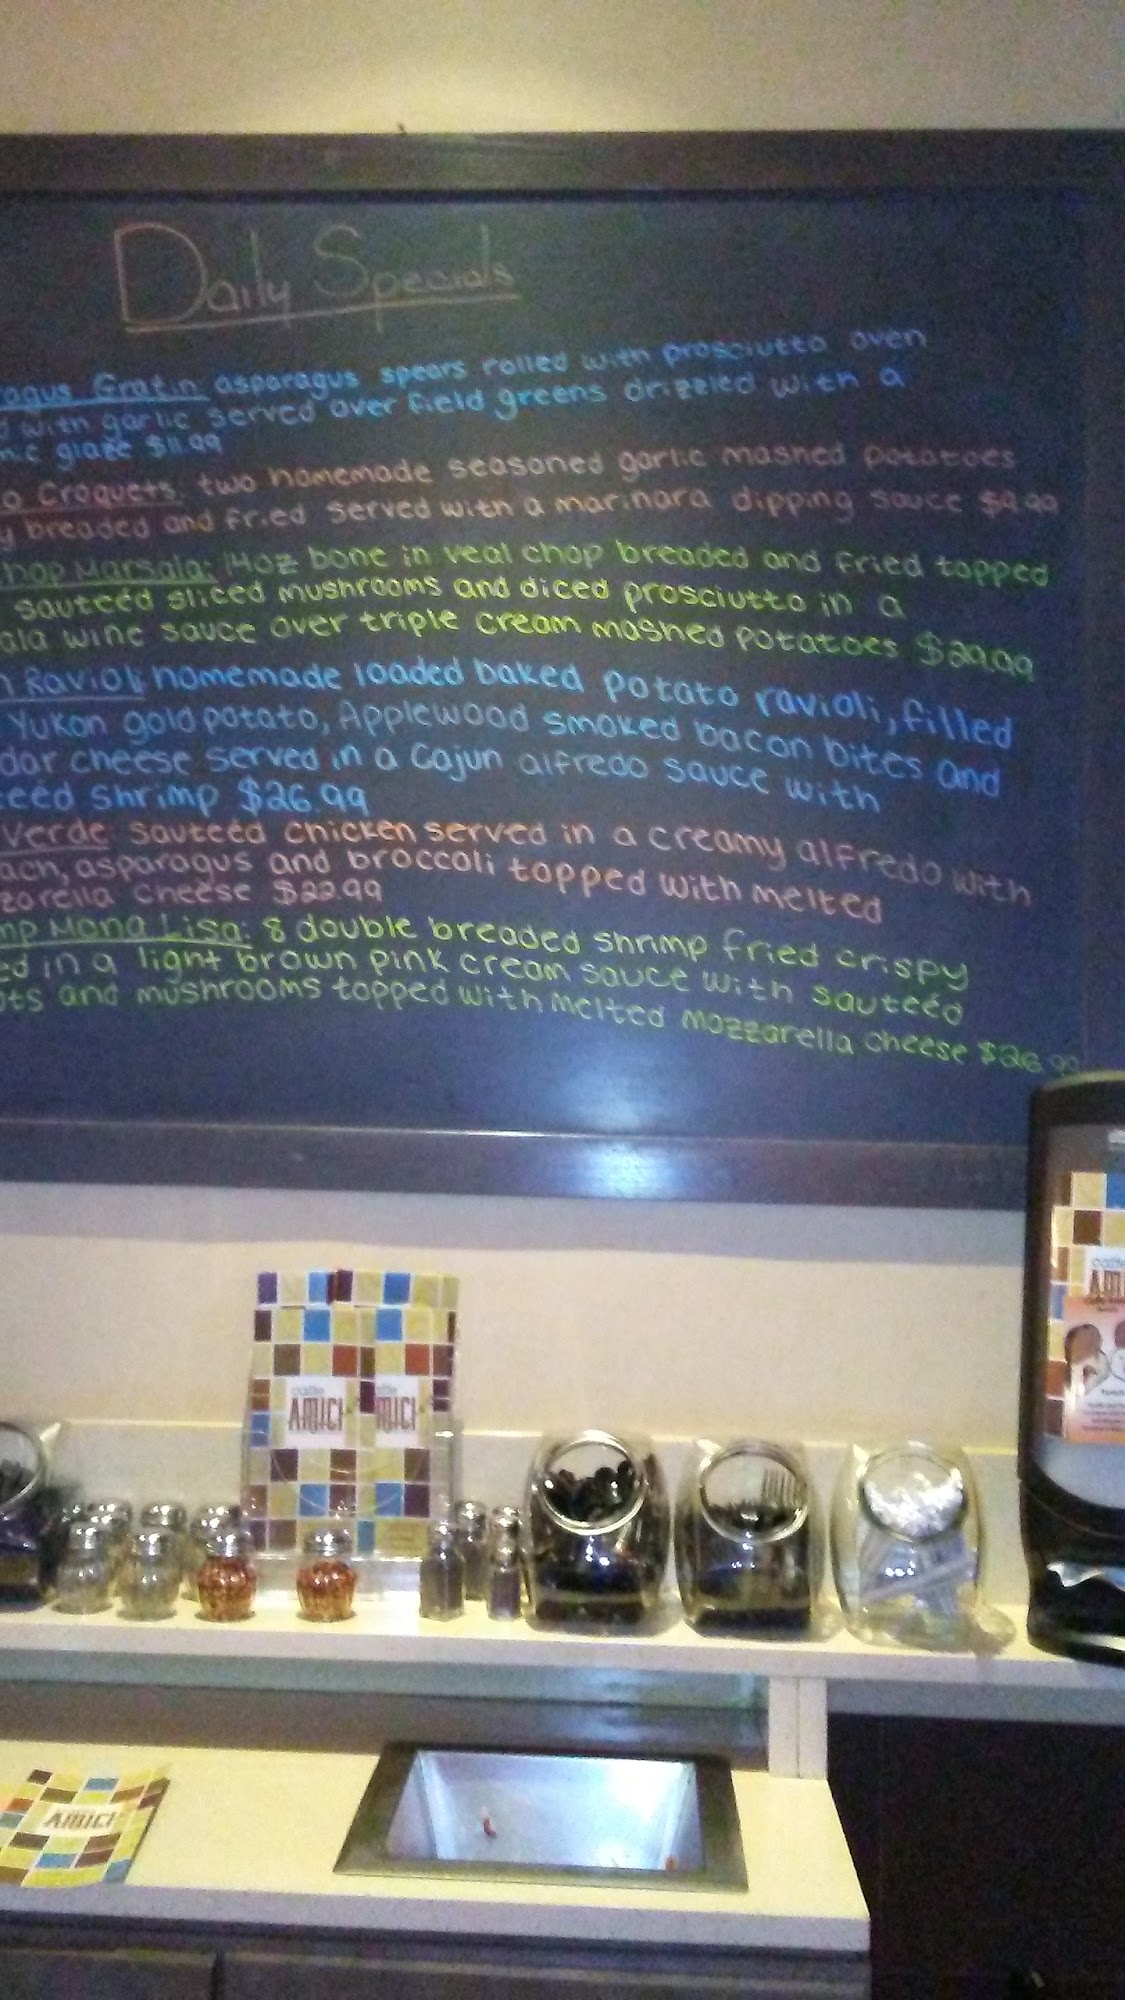 Daily Specials
ragus Gratin: asparagus spears rolled with prosciutto oven
d with garlic served over field greens drizzled with a
mic glaze $11.99
o Croquets: two homemade seasoned garlic mashed potatoes
y breaded and fried served with a marinara dipping sauce $9.99
hop Marsala: 14oz bone in veal chop breaded and fried topped
sauteéd sliced mushrooms and diced prosciutto in a
ala wine sauce over triple cream mashed potatoes $29.99
n Ravioli homemade loaded baked potato ravioli, filled
Yukon gold potato, Applewood smoked bacon bites and
dar cheese served in a Cajun alfredo sauce with
teéd shrimp $26.99
Verde: Sauteéd chicken served in a creamy alfredo with
ach, asparagus and broccoli topped with melted
zorella cheese $22.99
mp Mona Lisa: 8 double breaded shrimp fried crispy
ed in a light brown pink cream sauce with sauteéd
ots and mushrooms topped with melted mozzarella cheese $26.99
caffe
AMICI
caffe
AMICI
caffe
AMICI
AMICI